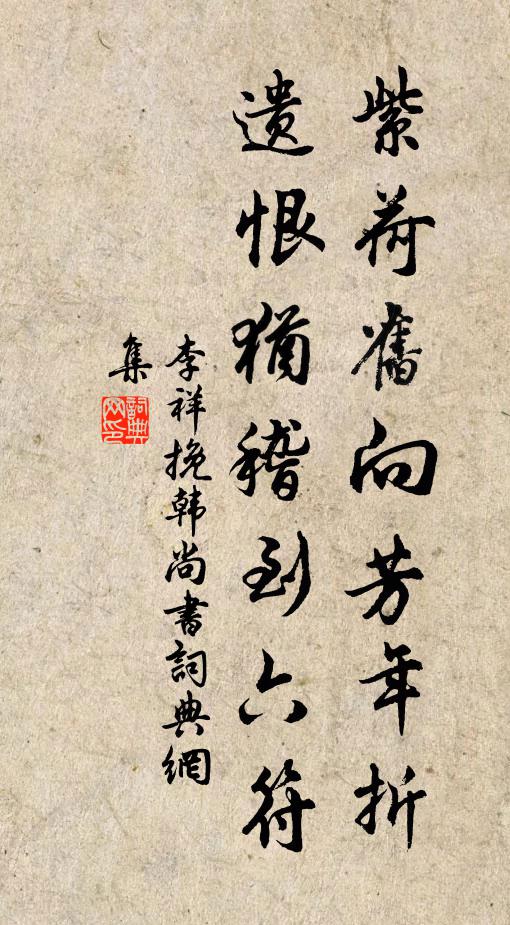 紫荷旧向芳年折
遗恨犹稽到六符
李祥挽韩尚书詞典網
集
詞典
网印